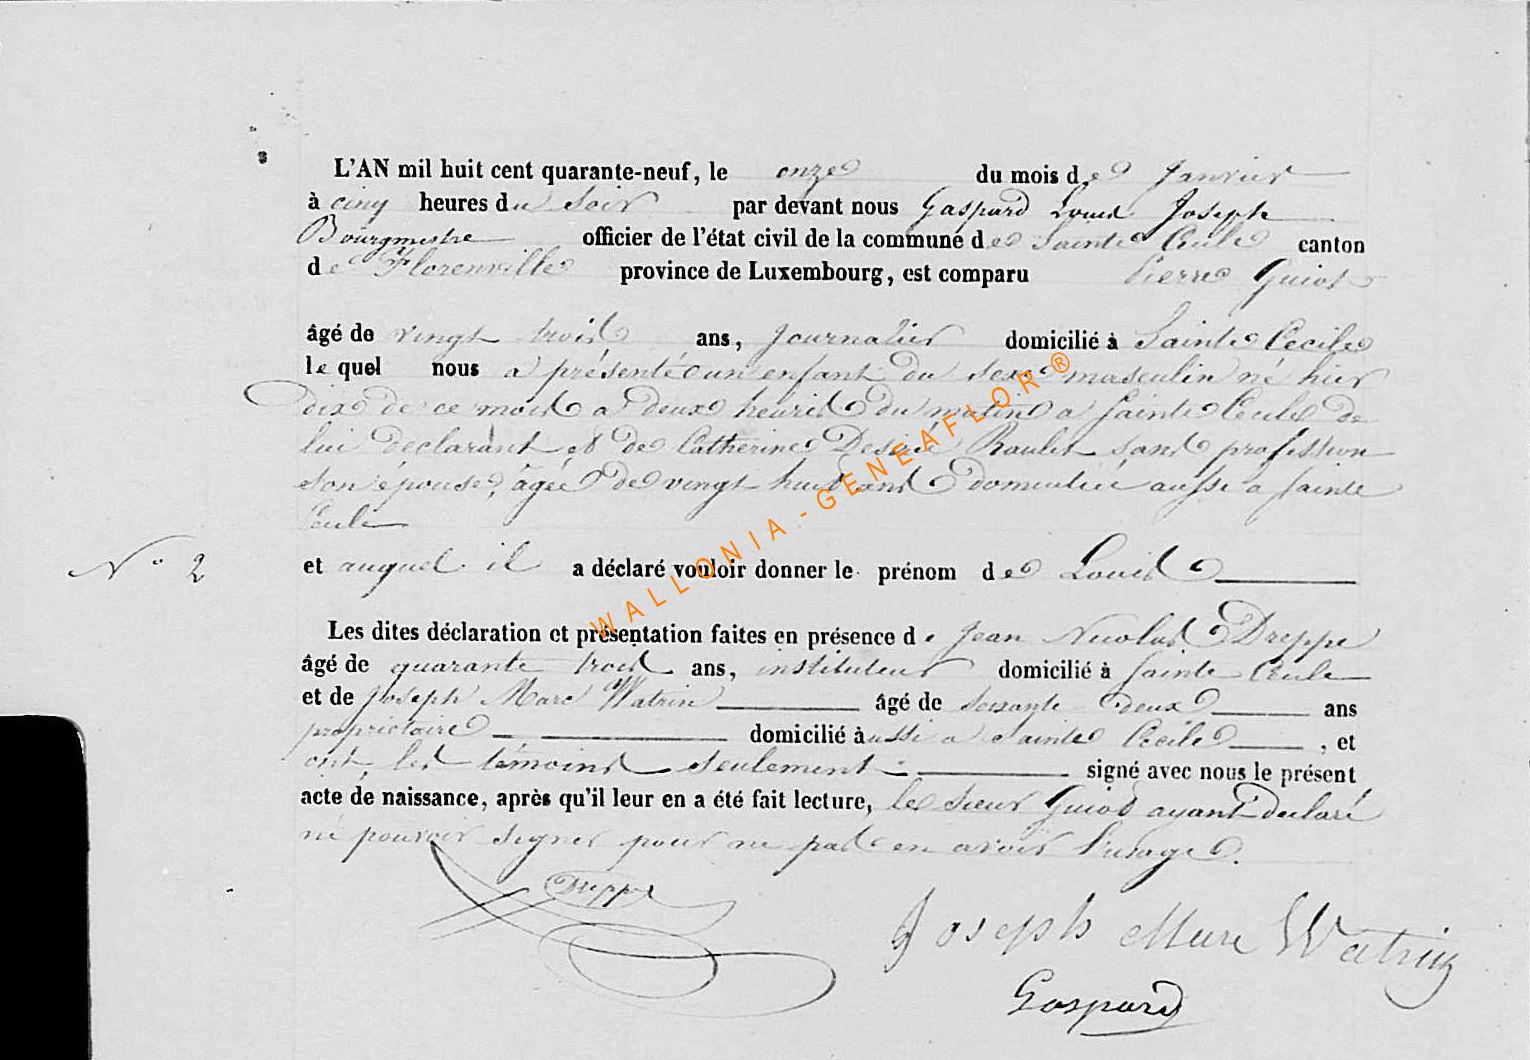 L'AN mil huit cent quarante-neuf, le onze du mois de Janvier
à cinq heures du Soir par devant nous Gaspard Louis Joseph
Bourgmestre officier de l'état civil de la commune de Sainte Cecile canton
de Florenville province de Luxembourg, est comparu Pierre Guiot
âgé de vingt trois ans, Journalier domicilié à Sainte Cecile
le quel nous a présenté un enfant du sexe masculin né hier
dix de ce mois a deux heures du matin a Sainte Cecile de
lui declarant et de Catherine Desiré Raulet sans profession
son épouse, âgée de vingt huit ans domiciliée aussi a Sainte
Cecile
N° 2
et auquel il a déclaré vouloir donner le prénom de Louis
Les dites déclaration et présentation faites en présence de Jean Nicolas Dreppe
âgé de quarante trois ans, instituteur domicilié à Sainte Cecile
et de Joseph Marc Watrin âgé de soixante deux ans
propriétaire domicilié àussi a Sainte Cécile, et
ont les témoins seulement signé avec nous le présent
acte de naissance, après qu'il leur en a été fait lecture, le sieur Guiot ayant declaré
ne pouvoir signer pour ne pas en avoir l'usage.
Dreppe
Joseph Marc Watrin
Gaspard
WALLONIA-GENEAFLOR®